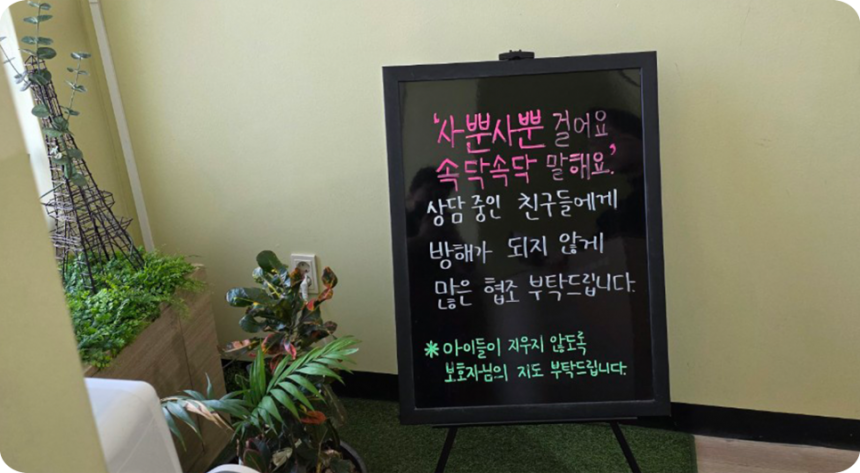 '사뿐사뿐 걸어요
속닥속닥 말해요.'
상담 중인 친구들에게
방해가 되지 않게
많은 협조 부탁드립니다.
* 아이들이 지우지 않도록
보호자님의 지도 부탁드립니다.